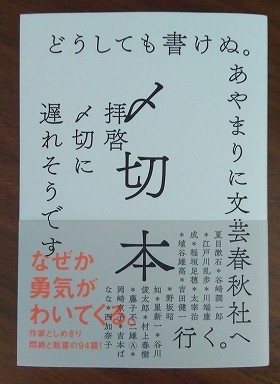 どうしても書けぬ。
あやまりに文芸春秋社へ
行く。
〆切本
拝啓
〆切に
遅れそうです
なぜか
勇気が
わいてくる。
作家としめきり
悶絶と歓喜の94篇!
夏目漱石*谷崎潤一郎
*江戸川乱歩*川端康
成*稲垣足穂*太宰治
*埴谷雄高*吉田健一
*野坂昭
如*星新一*谷川
俊太郎*村上春樹
*藤子不二雄Ⓐ*
岡崎京子*吉本ば
なな*西加奈子